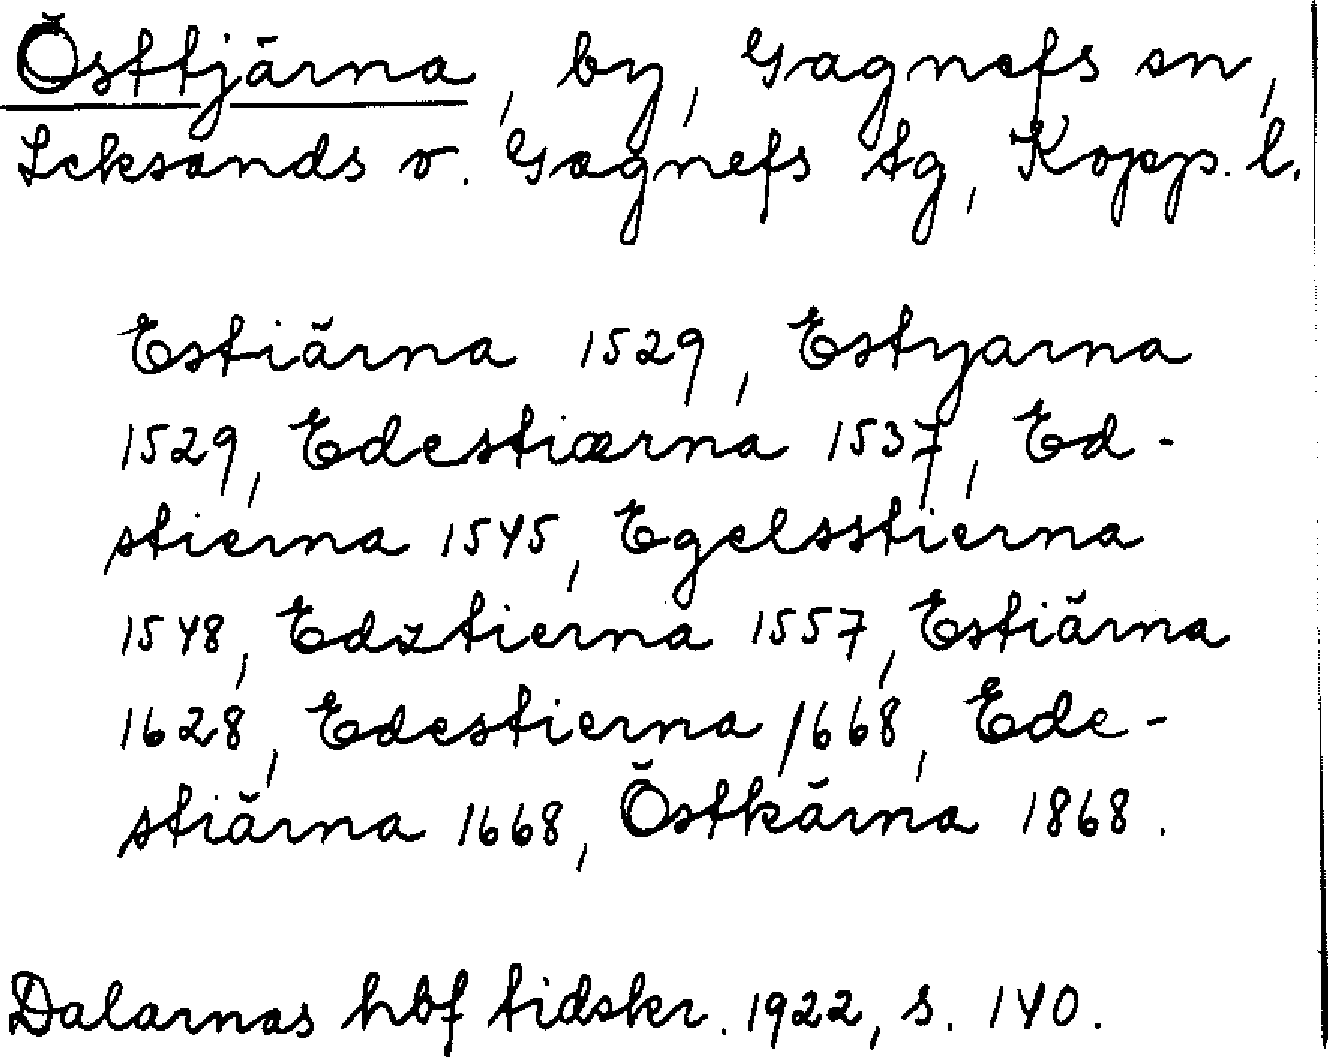 Östtjärna, by, Gagnefs sn,
Leksands o. Gagnefs tg, Kopp. l.
Estiärna 1529, Estyarna
1529, Edestiærna 1537, Ed-
stierna 1545, Egelsstierna
1548, Edztierna 1557, Estiärna
1628, Edestierna 1668, Ede-
stiärna 1668, Östkärna 1868.
Dalarnas hbf tidskr. 1922, s. 140.